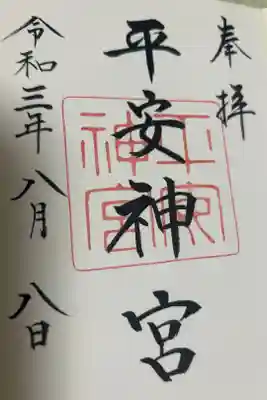 奉拝
平安神宮
平安神宮
令和三年八月八日